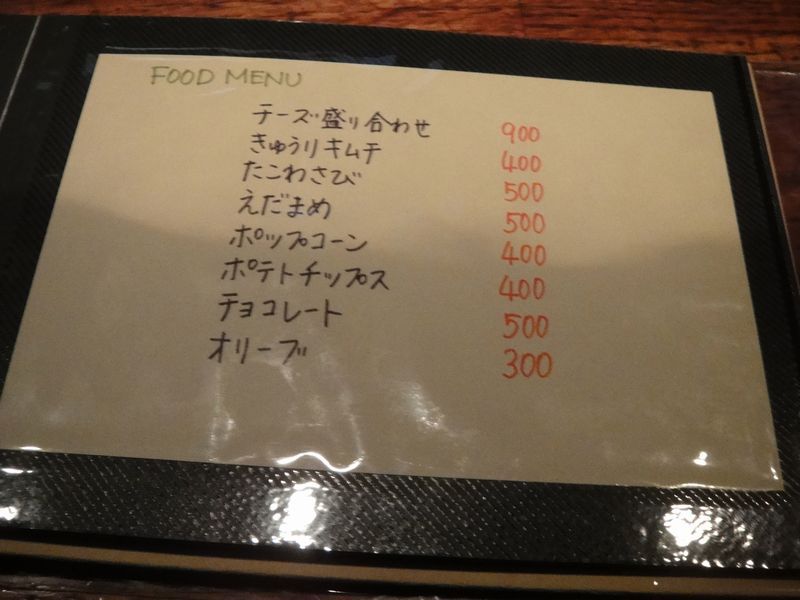 FOOD MENU
チーズ盛り合わせ 900
きゅうりキムチ 400
たこわさび 500
えだまめ 500
ポップコーン 400
ポテトチップス 400
チョコレート 500
オリーブ 300